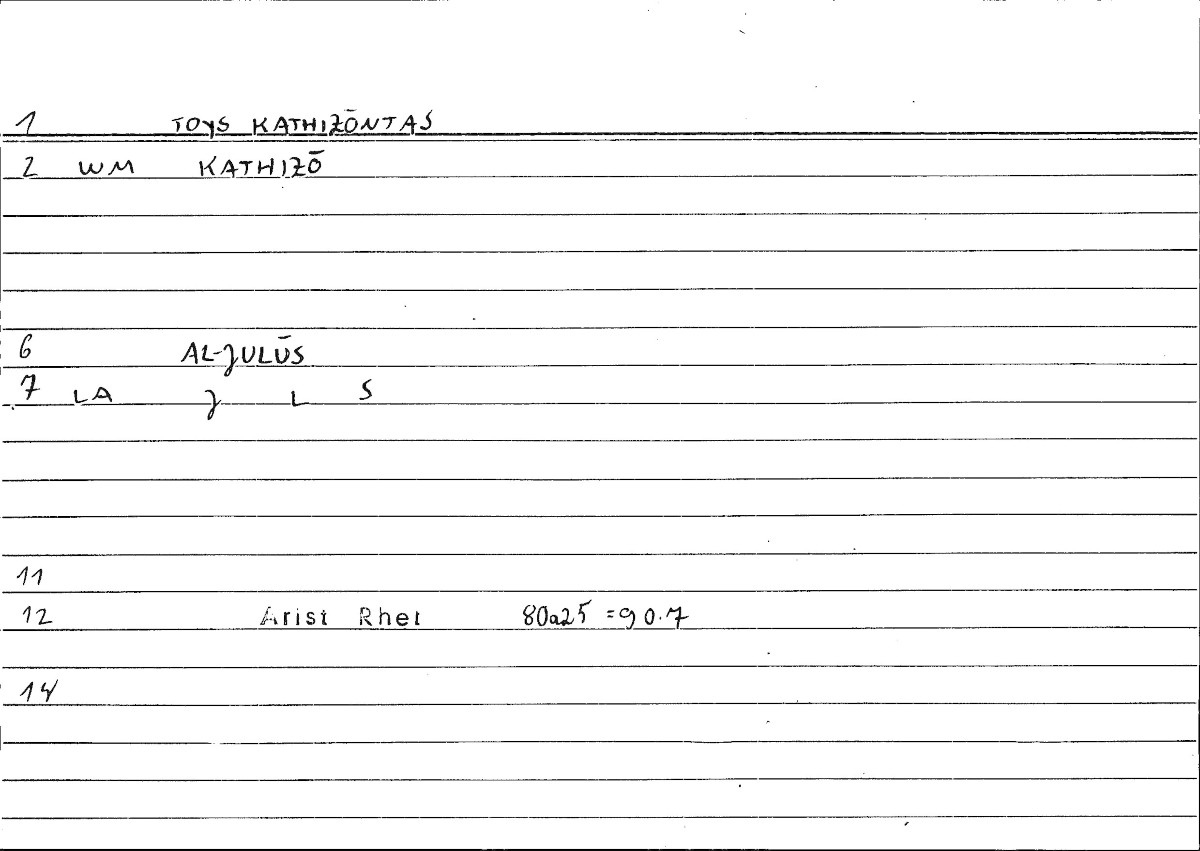 1 TOYS KATHIZŌNTAS
2 WM KATHIZŌ
6 AL-JULŪS
7 LA J L S
11
12 Arist Rhet 80a25 =90.7
14